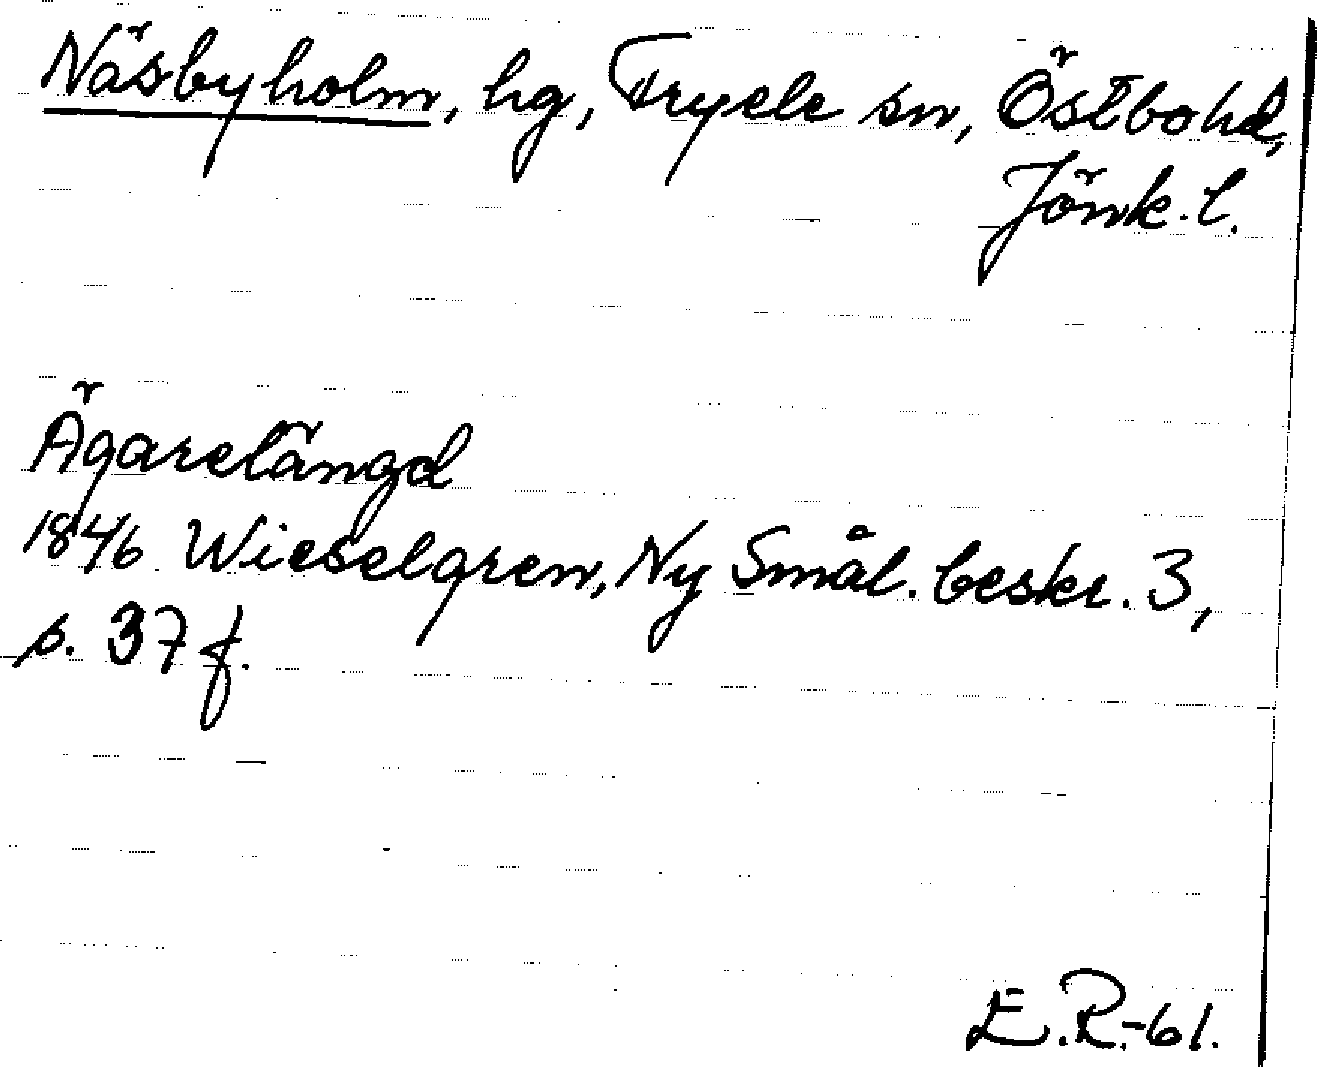 Näsbyholm, hg, Fryele sn, Östbohd,
Jönk. l.
Ägarelängd
1846 Wieselgren, Ny Smål. beskr. 3,
s. 37 f.
E.R.-61.